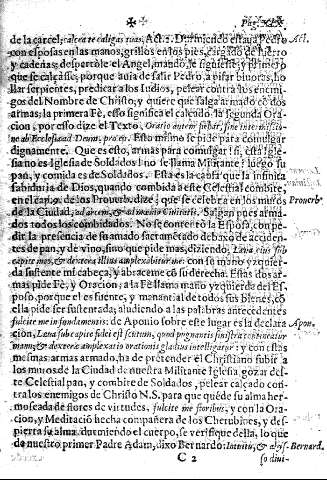 de la carcel; calcea te caligas tuas, Act. 2. Durmiendo estaua Pedro Act.
con esposas en las manos, grillos en los pies, cargado de hierro
y cadenas; despertòle el Angel, mandò le siguiesse, y lo primero
que se calçasse; porque auia de salir Pedro a pisar biuoras, ho
llar serpientes, predicar a los Iudios, pelear contra los enemi-
gos del Nombre de Christo; y quiere que salga armado cõ dos
armas; la primera Fè, esso significa el calçado: la segunda Ora
cion, por esso dize el Texto, Oratio autem fiebat, sine intermissio-
ne ab Ecclesia ad Deum, pro eo. Esto mismo se pide para comulgar
dignamente. Que es esto, armas para comulgar? si, esta Igle-
sia no es Iglesia de Soldados? no se llama Militante? luego su
pan, y comida es de Soldados. Esta es la causa que la infinita
sabiduria de Dios, quando combida a este Celestial combite,
en el cap. 9. de los Prouerb. dize; que se celebra en los muros Prouerb.
de la Ciudad, ad arcem, & ad mœnia Ciuitatis. Salgan pues arma-
dos todos los combidados. No se contentò la Esposa, con pe-
dir la presencia de su amado sacramẽtado debaxo de acciden-
tes de pan, y de vino, sino que pide mas, diziendo; Læua eius sub
capite meo, & dextera illius amplexabitur me: con su mano yzquier
da sustente mi cabeça, y abraceme cõ su derecha. Estas dos ar-
mas pide Fè, y Oracion; a la Fè llama mano yzquierda del Es-
poso, porque el es fuente, y manantial de todos sus bienes, cõ
ella pide ser sustentada; aludiendo a las palabras antecedentes
fulcite me in fundamentis: de Aponio sobre este lugar es la declara Apon.
cion, Læua sub capite fidei est scutum, quod pugnantis sinistra continetur
manu; & dextera amplexatis orationis gladius intelligitur: y con estas
mesmas armas armado, ha de pretender el Christiano subir a
los muros de la Ciudad de nuestra Militante Iglesia, gozar des-
te Celestial pan, y combite de Soldados, pelear calçado con-
tra los enemigos de Christo N.S. para que quede su alma her-
moseada de flores de virtudes, fulcite me floribus, y con la Ora-
cion, y Meditacio hecha compañera de los Cherubines, y des-
pierta su alma, durmiendo el cuerpo, se verifique della, lo que
de nuestro primer Padre Adam, dixo Bernardo: Bernard.
C 2 so diui-